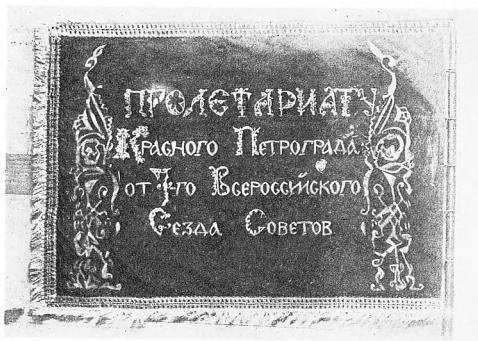 ПРОЛЕТАРИАТУ
Красного Петрограда
от 7-го Всероссийского
Сезда Советов